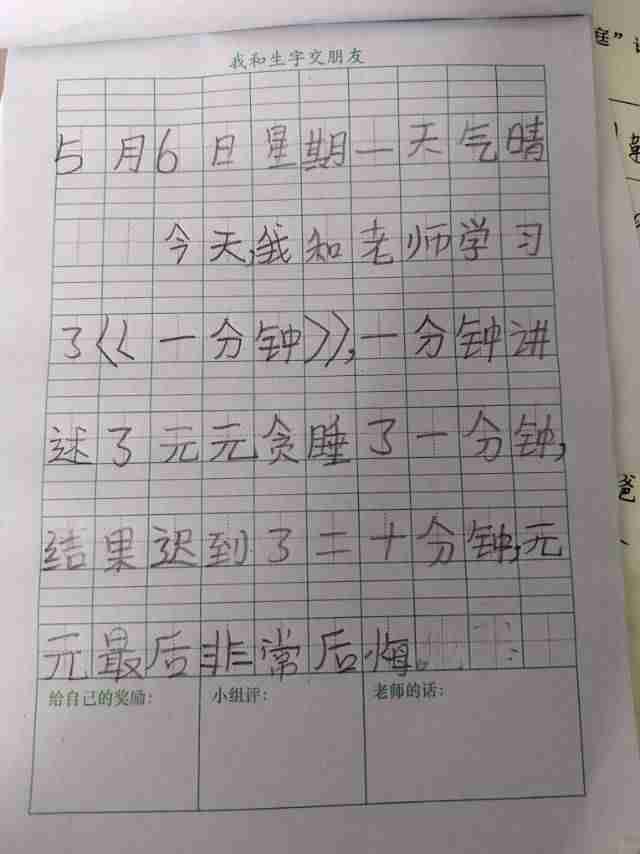 我和生字交朋友
5月6日星期一天气晴
今天,我和老师学习
了《一分钟》,一分钟讲
述了元元贪睡了一分钟,
结果迟到了二十分钟,元
元最后非常后悔。
给自己的奖励:
小组评:
老师的话:
庭”
爸